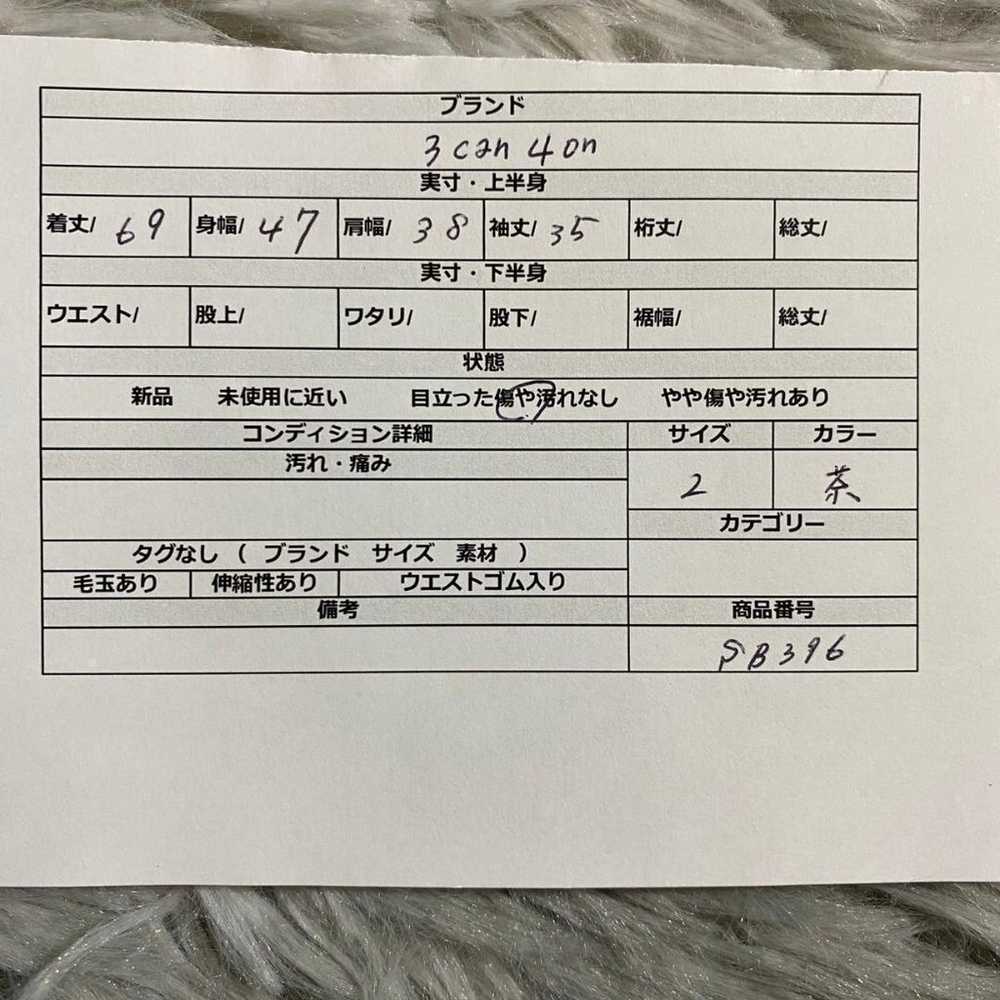 ブランド
3can4on
実寸・上半身
着丈/ 69 身幅/ 47 肩幅/ 38 袖丈/ 35 裄丈/ 総丈/
実寸・下半身
ウエスト/ 股上/ ワタリ/ 股下/ 裾幅/ 総丈/
状態
新品 未使用に近い 目立った傷や汚れなし やや傷や汚れあり
コンディション詳細 サイズ カラー
汚れ・痛み
2 茶
カテゴリー
タグなし ( ブランド サイズ 素材 )
毛玉あり 伸縮性あり ウエストゴム入り
備考 商品番号
SB396